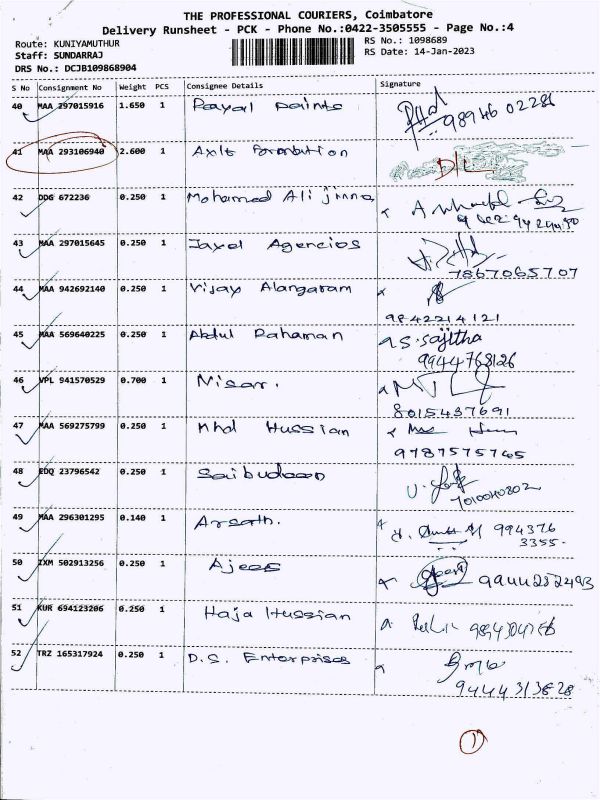 THE PROFESSIONAL COURIERS, Coimbatore
Delivery Runsheet - PCK - Phone No.:0422-3505555 - Page No.:4
Route: KUNIYAMUTHUR
RS No.: 1098689
Staff: SUNDARRAJ
RS Date: 14-Jan-2023
DRS No.: DCJB109868904
S No Consignment No Weight PCS Consignee Details Signature
40 MAA 297015916 1.650 1 Royal Paints 98946 02286
41 MAA 293106940 2.600 1 D/L
42 DDG 672236 0.250 1 Mohamed Ali jinna
43 MAA 297015645 0.250 1 Jayel Agencios
7867065707
44 MAA 942692140 0.250 1 Vijay Alangaram
9842214121
45 MAA 569640225 0.250 1 Abdul Rahaman S. Sajitha
9944768126
46 VPL 941570529 0.700 1 Nisar.
8015437691
47 MAA 569275799 0.250 1 Mhd Hussian
9787575765
48 EDQ 23796542 0.250 1 Saibudeen
7010040802
49 MAA 296301295 0.140 1 Arsath. 994376
3355.
50 IXM 502913256 0.250 1 Ajees 9944282493
51 KUR 694123206 0.250 1 Haja Hussian
52 TRZ 165317924 0.250 1 D.S. Enterprises
9444313828
1